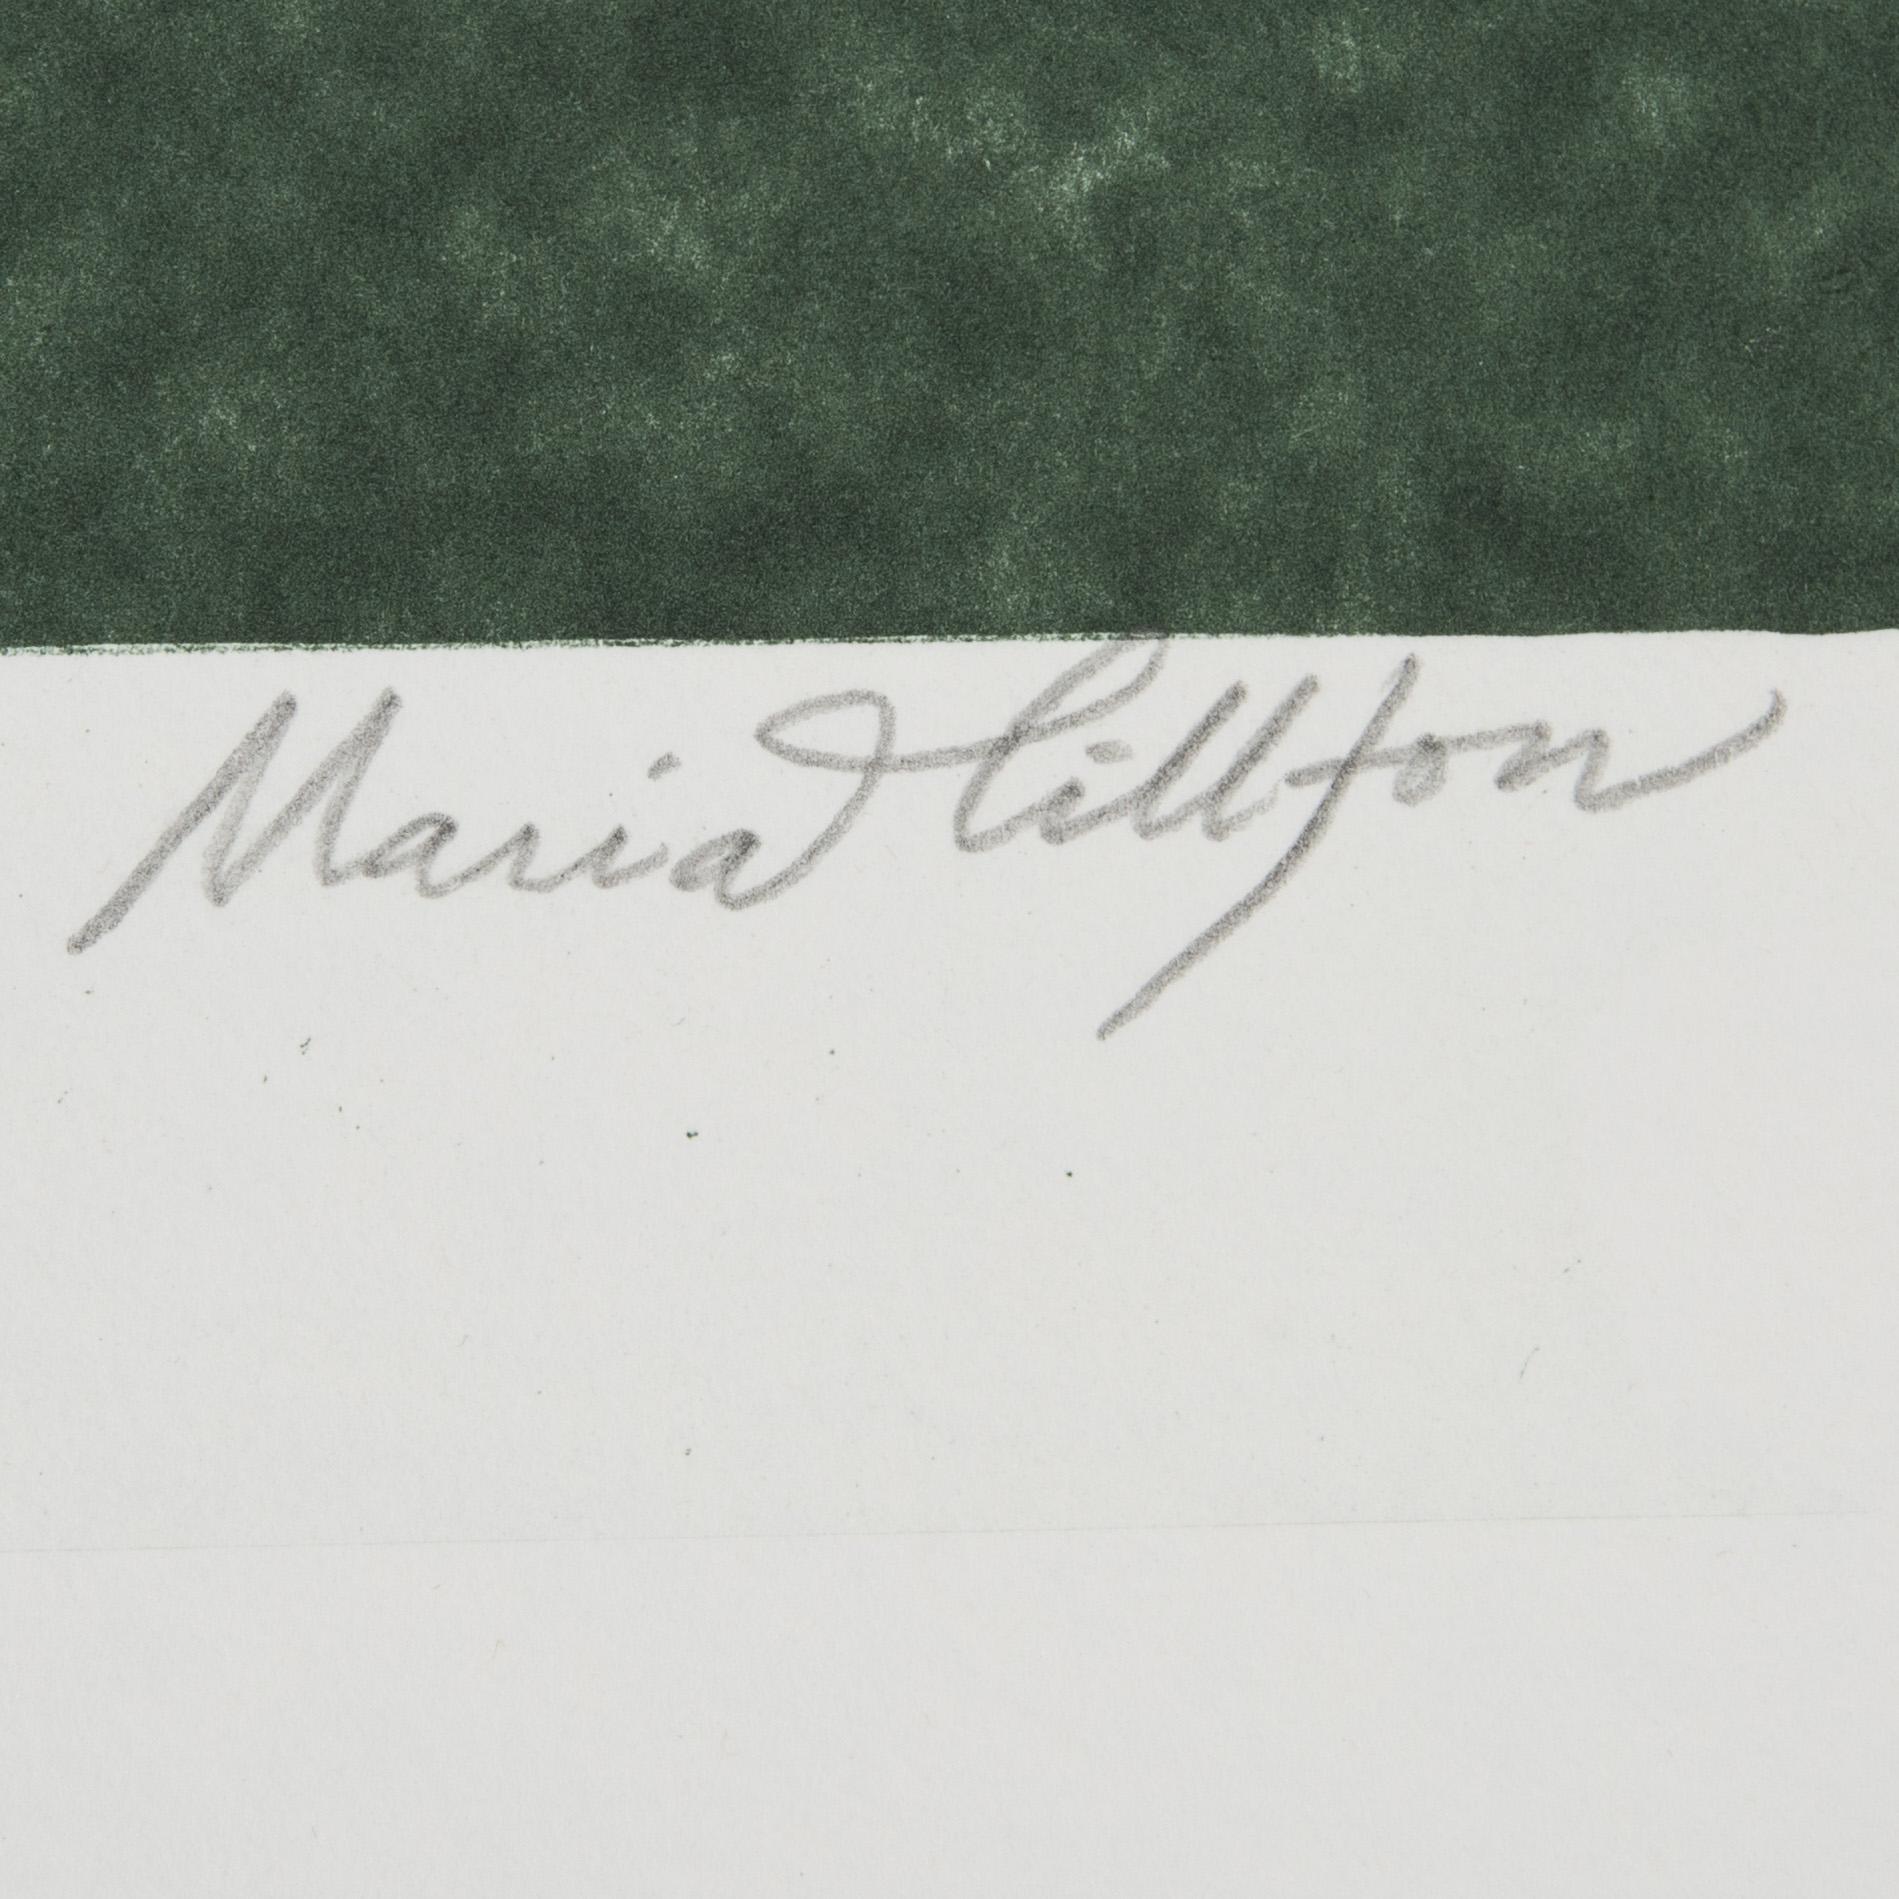 Maria Hillfon